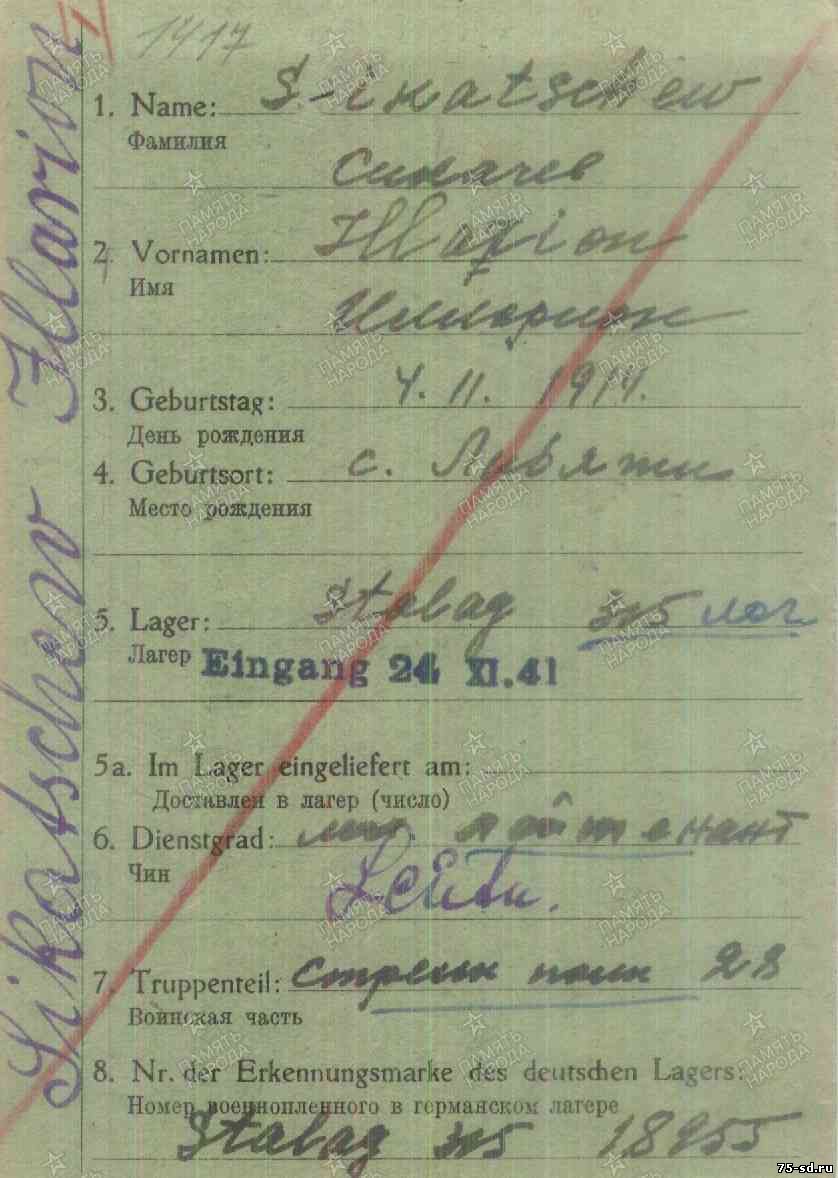 1417
1. Name: Sikatschew
Фамилия
Сикачев
2. Vornamen: Illarion
Имя
Илларион
3. Geburtstag: 4. 11. 1914.
День рождения
4. Geburtsort: с.
Место рождения
5. Lager: Stalag 305 лаг
Лагер Eingang 24. XI.41
5a. Im Lager eingeliefert am:
Доставлен в лагер (число)
6. Dienstgrad: мл. лейтенант
Чин
Leutn.
7. Truppenteil: Стрелк полк 28
Воинская часть
8. Nr. der Erkennungsmarke des deutschen Lagers:
Номер военнопленного в германском лагере
Stalag 305 18955
Sikatschev Illarion
ПАМЯТЬ
НАРОДА
75-sd.ru